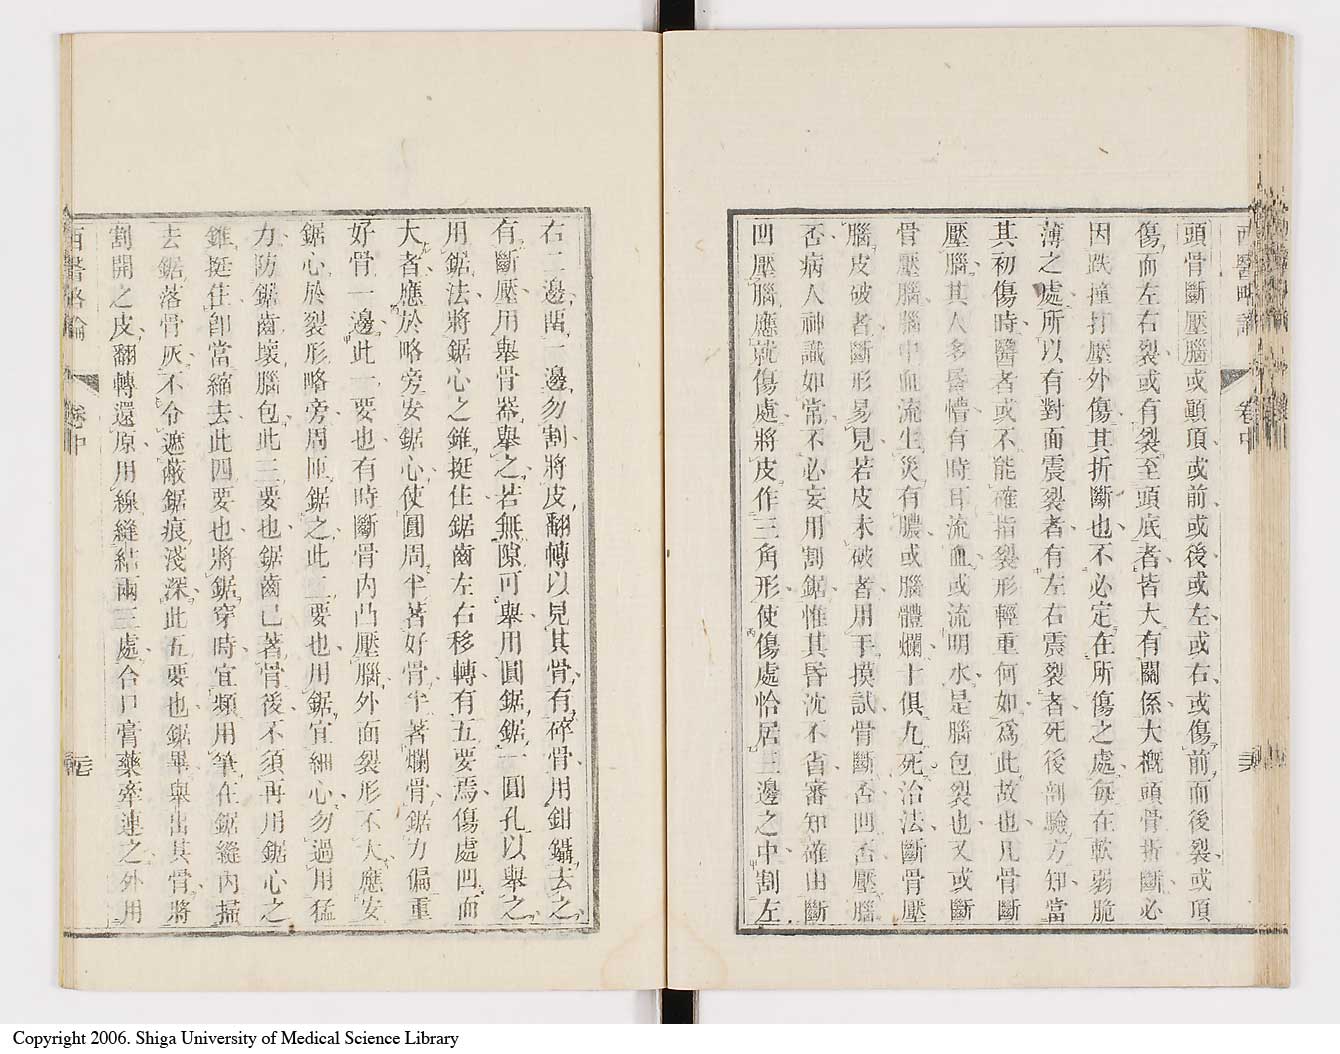 西醫略論 卷中
頭骨斷壓腦或顖頂或前或後或左或右或傷前而後裂或頂
傷而左右裂或有裂至頭底者皆大有關係大槪頭骨折斷必
因跌撞打壓外傷其折斷也不必定在所傷之處每在軟弱脆
薄之處所以有對面震裂者有左右震裂者死後剖驗方知當
其初傷時醫者或不能確指裂形輕重何如爲此故也凡骨斷
壓腦其人多昏懵有時耳流血或流明水是腦包裂也又或斷
骨壓腦腦中血流生災有膿或腦體爛十俱九死治法斷骨壓
腦皮破者斷形易見若皮未破者用手摸試骨斷否凹否壓腦
否病人神識如常不必妄用割鋸惟其昏沈不省審知確由斷
凹壓腦應就傷處將皮作三角形使傷處恰居三邊之中割左
右二邊留一邊勿割將皮翻轉以見其骨有碎骨用鉗鑷去之
有斷壓用舉骨器舉之若無隙可舉用圓鋸鋸一圓孔以舉之
用鋸法將鋸心之錐挺住鋸齒左右移轉有五要焉傷處凹而
大者應於略旁安鋸心使圓周半著好骨半著爛骨鋸力偏重
好骨一邊此一要也有時斷骨內凸壓腦外面裂形不大應安
鋸心於裂形略旁周匝鋸之此二要也用鋸宜細心勿過用猛
力防鋸齒壞腦包此三要也鋸齒已著骨後不須再用鋸心之
錐挺住卽當縮去此四要也將鋸穿時宜頻用筆在鋸縫內掃
去鋸落骨灰不令遮蔽鋸痕淺深此五要也鋸畢舉出其骨將
割開之皮翻轉還原用線縫結兩三處合口膏藥牽連之外用
西醫略論 卷中
Copyright 2006. Shiga University of Medical Science Library